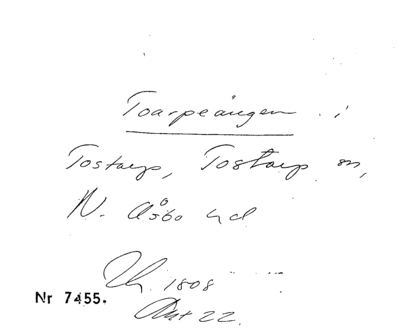 Toarpeängen i
Tostarp, Tostarp sn,
N. Åsbo hd
1808
Nr 7455.
Akt 22.